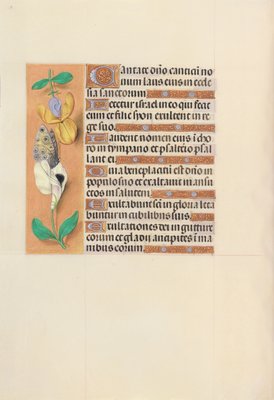 Cantate dño canticũ no
uum laus eius in eccle
sia sanctorum
Letetur israel in eo qui fecit
eum et filie syon exultent in re
ge suo.
Laudent nomen eius i choro
in tympano et psalterio psal
lant ei
Quia beneplacitũ est dño in
populo suo et exaltauit mansu
etos in salutem
Exultabunt sci in gloria leta
buntur in cubilibus suis.
Exultationes dei in gutture
eorum et gladii ancipites ĩ ma
nibus eorum.